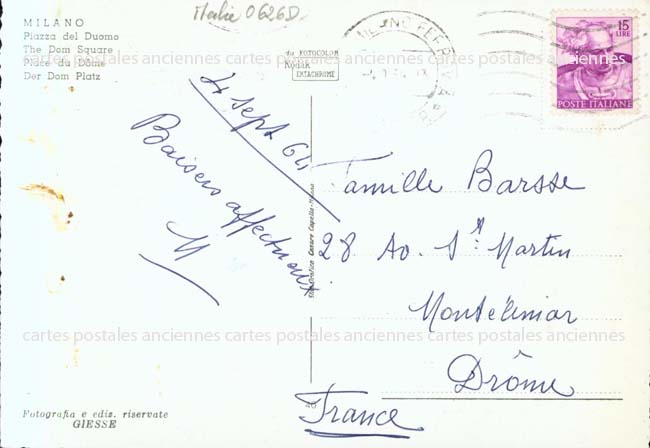 Italie 0626D.
MILANO
Piazza del Duomo
The Dom Square
Place du Dôme
Der Dom Platz
da FOTOCOLOR
Kodak
EKTACHROME
MILANO FERR
15
LIRE
POSTE ITALIANE
cartes postales anciennes cartes postales anciennes
4 sept 64
Baisers affectueux
M
Famille Barsse
28 Av. St Martin
Montélimar
Drôme
France
cartes postales anciennes cartes postales anciennes
cartes postales anciennes cartes postales anciennes
Cesare Capello - Milano
Fotografia e ediz. riservate
GIESSE